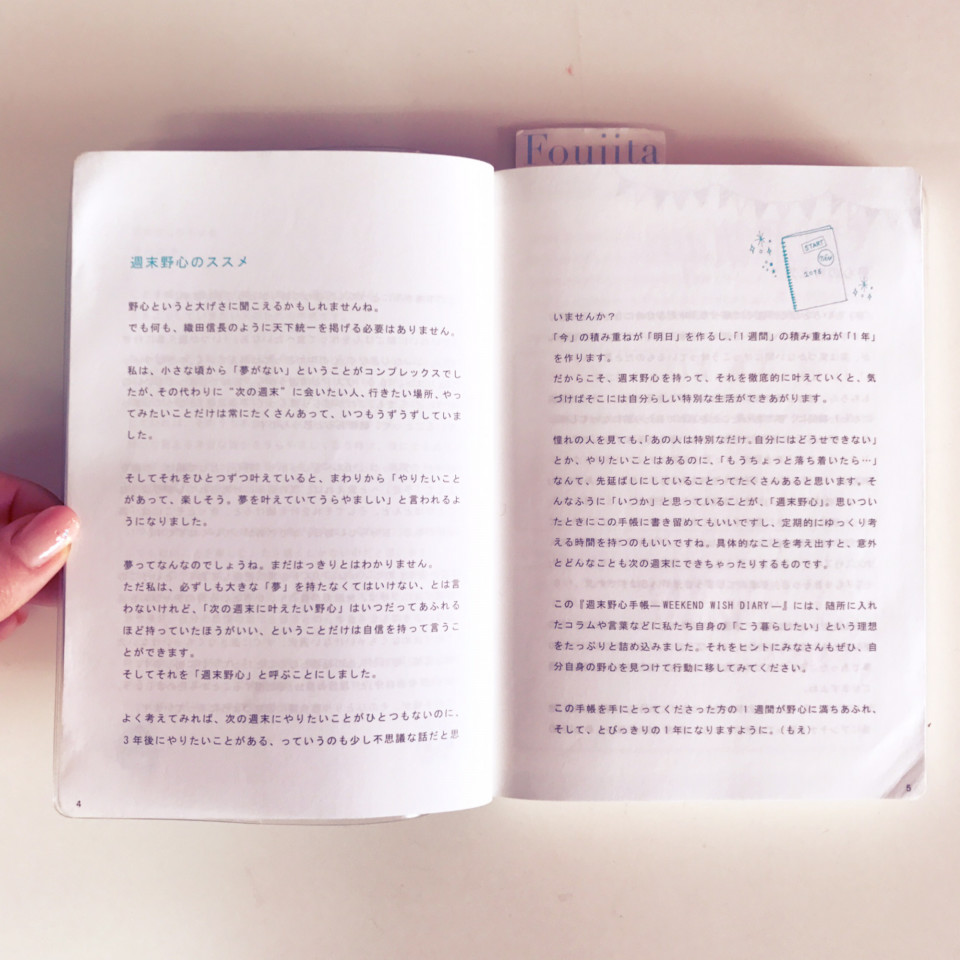 Foujita
週末野心のススメ
野心というと大げさに聞こえるかもしれませんね。
でも何も、織田信長のように天下統一を掲げる必要はありません。
私は、小さな頃から「夢がない」ということがコンプレックスでし
たが、その代わりに“次の週末”に会いたい人、行きたい場所、やっ
てみたいことだけは常にたくさんあって、いつもうずうずしていま
した。
そしてそれをひとつずつ叶えていると、まわりから「やりたいこと
があって、楽しそう。夢を叶えていてうらやましい」と言われるよ
うになりました。
夢ってなんなのでしょうね。まだはっきりとはわかりません。
ただ私は、必ずしも大きな「夢」を持たなくてはいけない、とは言
わないけれど、「次の週末に叶えたい野心」はいつだってあふれる
ほど持っていたほうがいい、ということだけは自信を持って言うこ
とができます。
そしてそれを「週末野心」と呼ぶことにしました。
よく考えてみれば、次の週末にやりたいことがひとつもないのに、
3年後にやりたいことがある、っていうのも少し不思議な話だと思
4
START
いませんか？
「今」の積み重ねが「明日」を作るし、「1週間」の積み重ねが「1年」
を作ります。
だからこそ、週末野心を持って、それを徹底的に叶えていくと、気
づけばそこには自分らしい特別な生活ができあがります。
憧れの人を見ても、「あの人は特別なだけ。自分にはどうせできない」
とか、やりたいことはあるのに、「もうちょっと落ち着いたら…」
なんて、先延ばしにしていることってたくさんあると思います。そ
んなふうに「いつか」と思っていることが、「週末野心」。思いつい
たときにこの手帳に書き留めてもいいですし、定期的にゆっくり考
える時間を持つのもいいですね。具体的なことを考え出すと、意外
とどんなことも次の週末にできちゃったりするものです。
この『週末野心手帳―WEEKEND WISH DIARY―』には、随所に入れ
たコラムや言葉などに私たち自身の「こう暮らしたい」という理想
をたっぷりと詰め込みました。それをヒントにみなさんもぜひ、自
分自身の野心を見つけて行動に移してみてください。
この手帳を手にとってくださった方の1週間が野心に満ちあふれ、
そして、とびっきりの1年になりますように。（もえ）
5